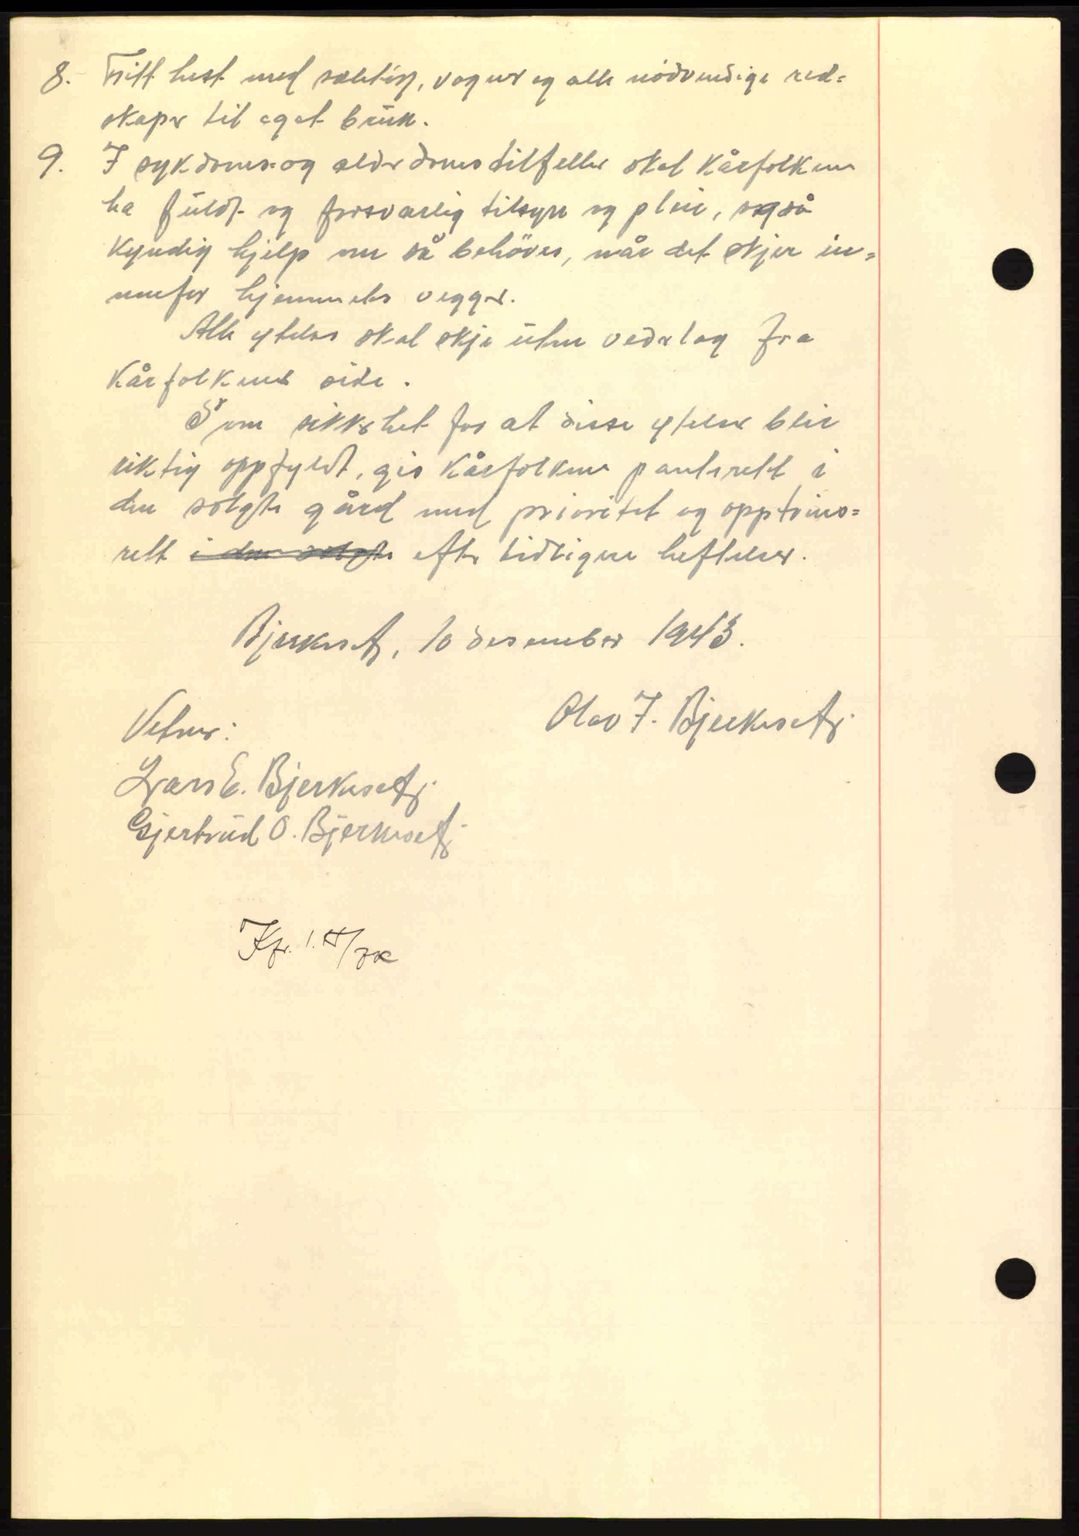 8. Fritt hest med seletöy, vogner og alle nödvendige red=
skaper til eget bruk.
9. I sykdoms- og alderdomstilfeller skal kårfolkene
ha fuld og forsvarlig tilsyn og pleie, også
kyndig hjelp om så behöves, når det skjer in=
nenfor hjemmets vegger.
Alle ytelser skal skje uten vederlag fra
kårfolkenes side.
Som sikkerhet for at disse ytelser blir
riktig oppfyldt, gis kårfolkene panterett i
den solgte gård med prioritet og opptrins=
rett i den solgte efter tidligere heftelser.
Bjerkeset, 10 desember 1943.
Vitner:
Olav J. Bjerkesett.
Lars E. Bjerkesett.
Gjertrud O. Bjerkesett.
Kfr.